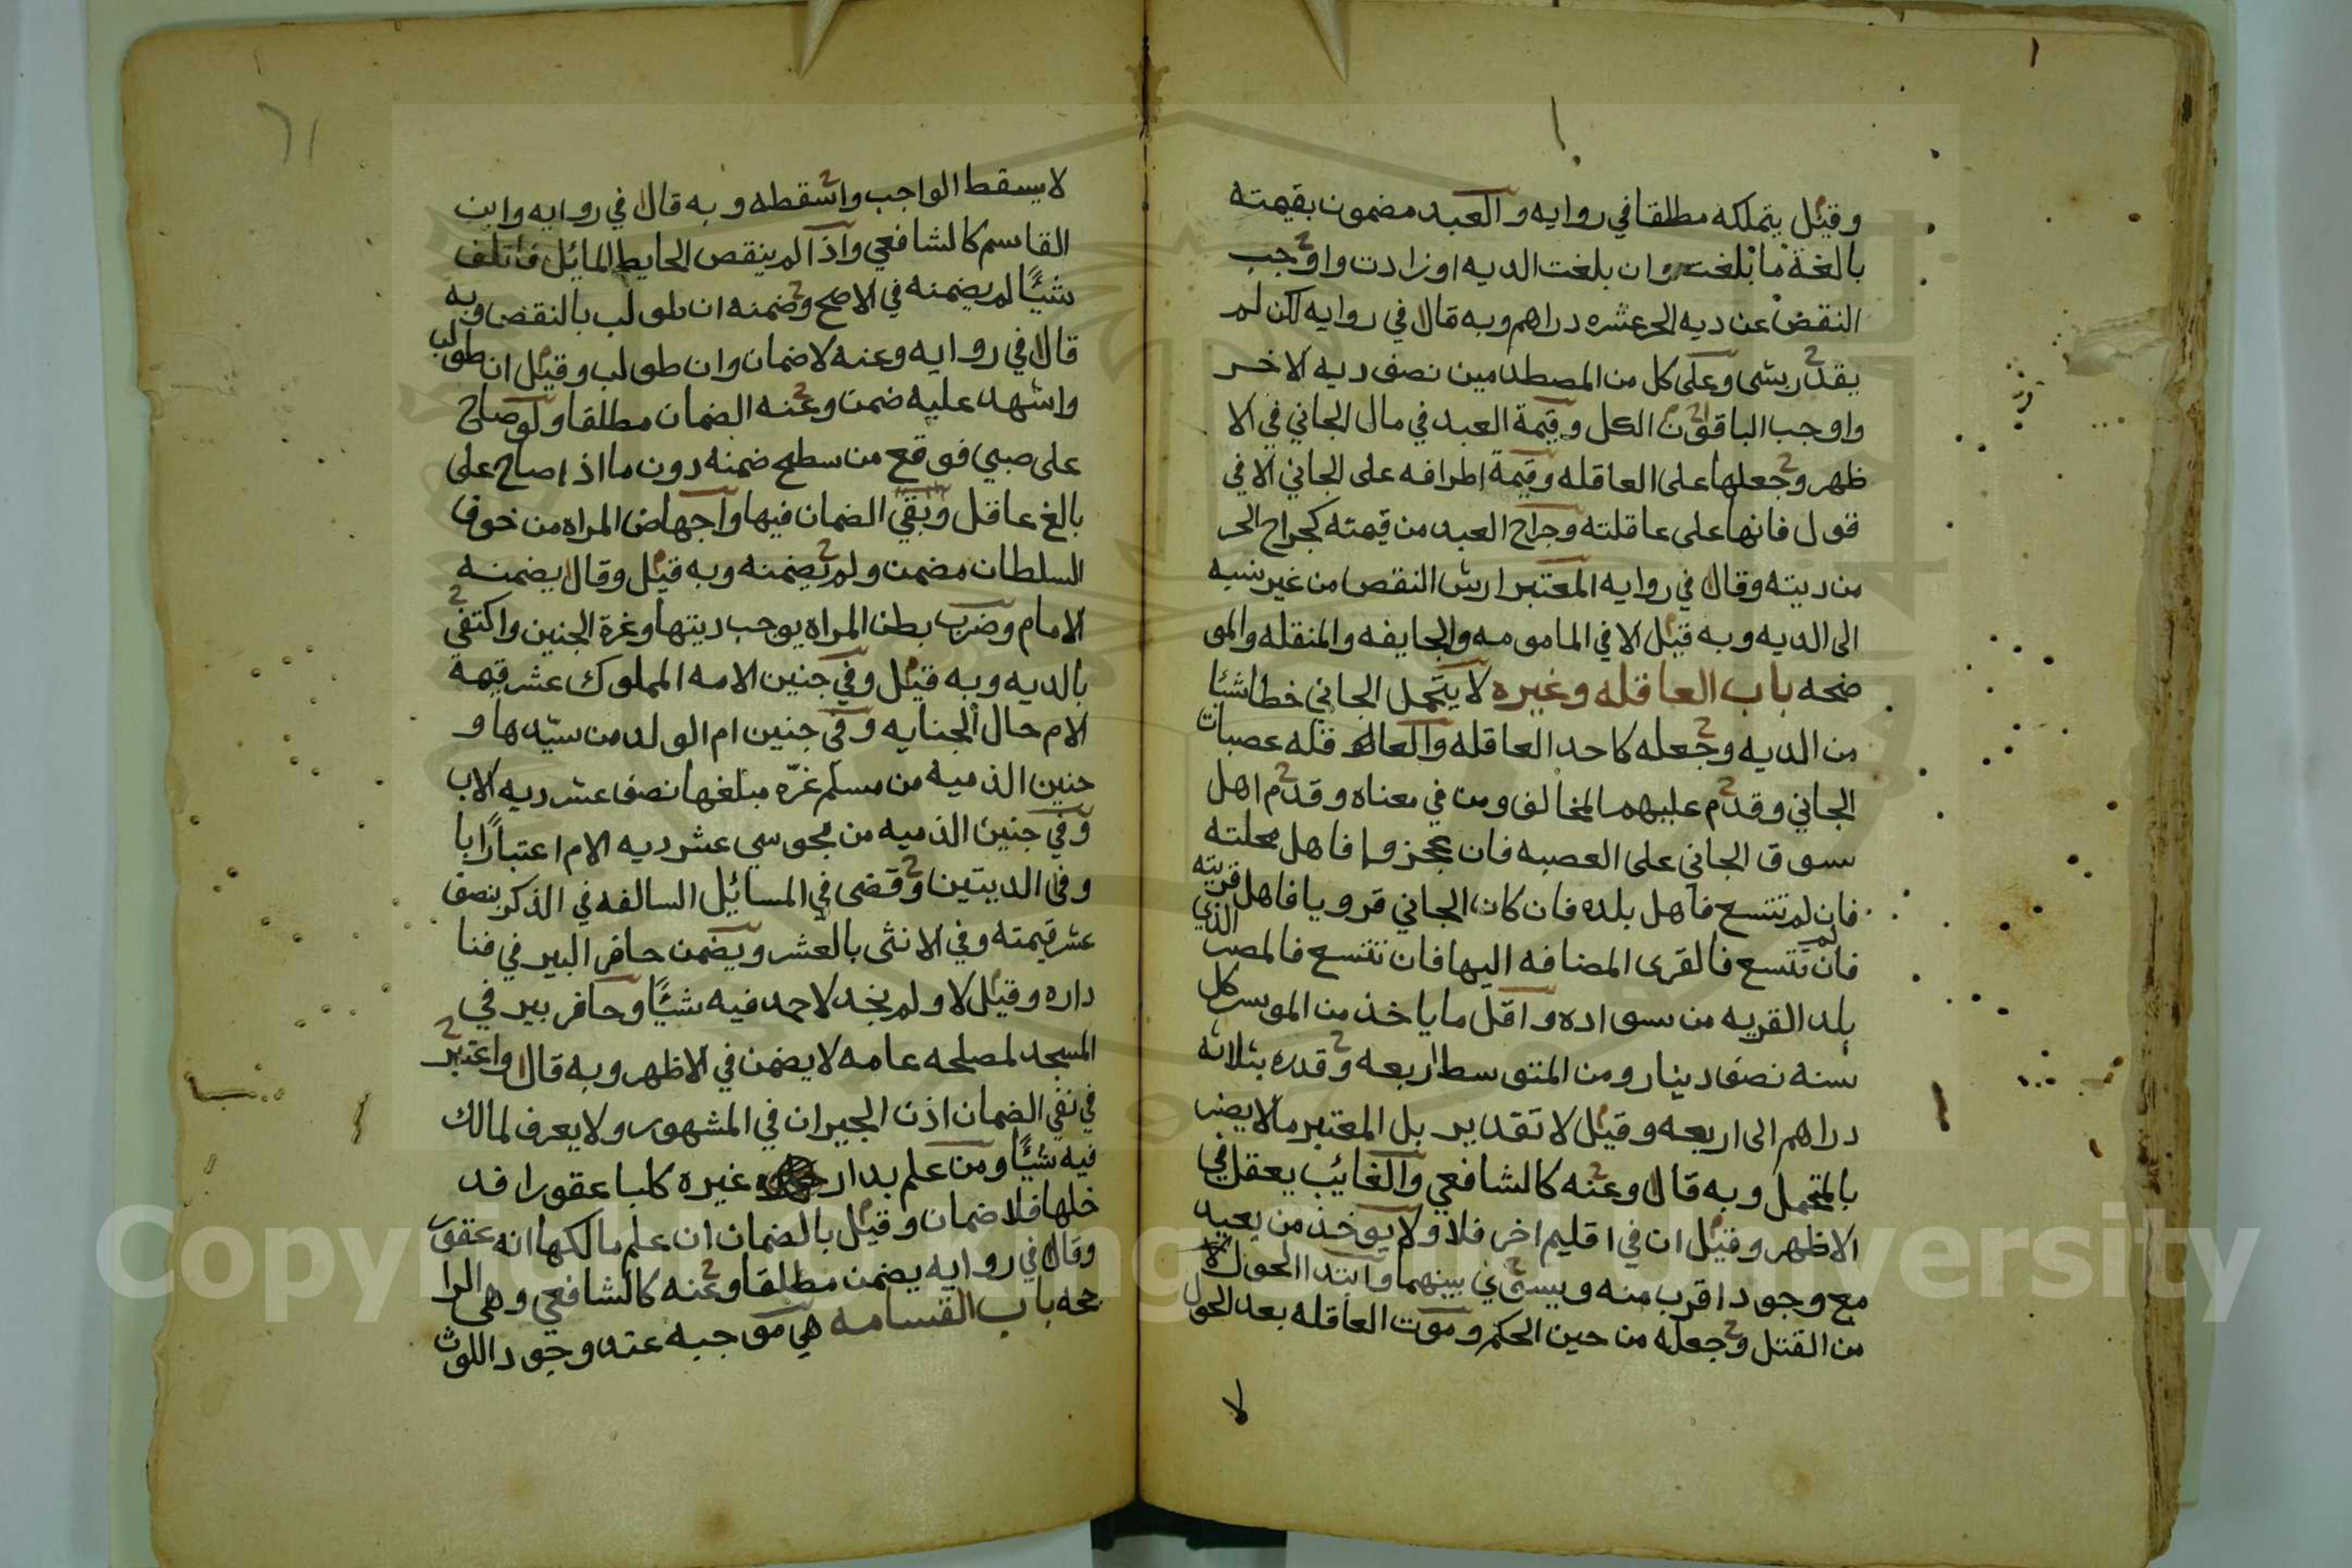 وقيل يتملكه مطلقا في روايه والعبد مضمون بقيمته
بالغة ما بلغت وان بلغت الديه او زادت واوجب
النقض عن ديه الحر عشره دراهم وبه قال في روايه لكن لم
يقدر بشي وعلى كل من المصطدمين نصف ديه الاخر
واوجب الباقون الكل وقيمة العبد في مال الجاني في الا
ظهر وجعلها على العاقله وقيمة اطرافه على الجاني الا في
قول فانها على عاقلته وجراح العبد من قيمته كجراح الحر
من ديته وقال في روايه المعتبر ارش النقص من غير نسبه
الى الديه وبه قيل الا في المامومه والجايفه والمنقله والمو
ضحه باب العاقله وغيره لا يتحمل الجاني خطا شيئا
من الديه وجعله كاحد العاقله والعاقله عصبات
الجاني وقدم عليهما المخالف ومن في معناه وقدم اهل
سوق الجاني على العصبه فان عجزوا فاهل محلته
فان لم تتسع فاهل بلده فان كان الجاني قرويا فاهل قريته
فان لم تتسع فالقرى المضافه اليها فان تتسع فالمصر الذي
بلد القريه من سواده واقل ما ياخذ من الموسر كل
سنه نصف دينار ومن المتوسط اربعه وقدره بثلاثه
دراهم الى اربعه وقيل لا تقدير بل المعتبر مالا يضر
بالمتحمل وبه قال وعنه كالشافعي والغائب يعقل في
الاظهر وقيل ان في اقليم اخر فلا ولا يوخذ من بعيد
مع وجود اقرب منه ويسوي بينهما وابتدا الحول
من القتل وجعله من حين الحكم وموت العاقله بعد الحول
لا
٦١
لا يسقط الواجب واسقطه وبه قال في روايه وابن
القاسم كالشافعي واذا لم ينقص الحايط المائل فاتلف
شيئًا لم يضمنه في الاصح وضمنه ان طولب بالنقض وبه
قال في روايه وعنه لا ضمان وان طولب وقيل ان طولب
واشهد عليه ضمن وعنه الضمان مطلقا ولو صاح
على صبي فوقع من سطح ضمنه دون ما اذا صاح على
بالغ عاقل وبقي الضمان فيها واجهاض المراه من خوف
السلطان مضمن ولم يضمنه وبه قيل وقال يضمنه
الامام وضرب بطن المراه يوجب ديتها وغرة الجنين واكتفي
بالديه وبه قيل وفي جنين الامه المملوك عشر قيمة
الام حال الجنايه وفي جنين ام الولد من سيدها و
جنين الذميه من مسلم غرّه مبلغها نصف عشر ديه الاب
وفي جنين الذميه من مجوسي عشر ديه الام اعتبارًا با
وفى الديتين وقضى في المسائل السالفه في الذكر بنصف
عشر قيمته وفي الانثى بالعشر ويضمن حافر البير في فنا
داره وقيل لا ولم نجد لاحمد فيه شيئًا وحافر بير في
المسجد لمصلحه عامه لا يضمن في الاظهر وبه قال واعتبر
في نفي الضمان اذن الجيران في المشهور ولا يعرف لمالك
فيه شيئًا ومن علم بدار غيره كلبا عقورا فد
خلها فلا ضمان وقيل بالضمان ان علم مالكها انه عقور
وقال في روايه يضمن مطلقا وعنه كالشافعي وهي الرا
جحه باب القسامه هي موجبه عند وجود اللوث
Copyright © King Saud University